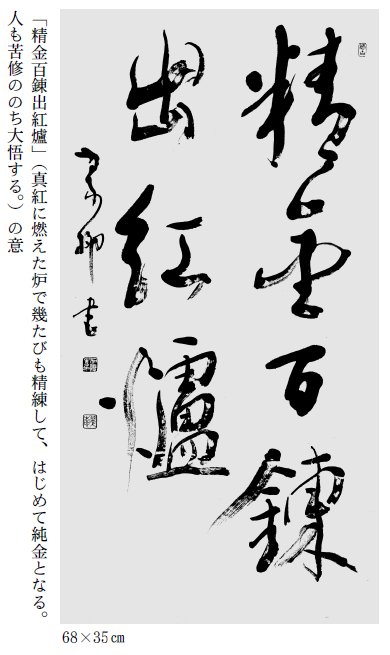 精金百錬
出紅爐
「精金百錬出紅爐」（真紅に燃えた炉で幾たびも精練して、はじめて純金となる。
人も苦修ののち大悟する。）の意
68×35㎝